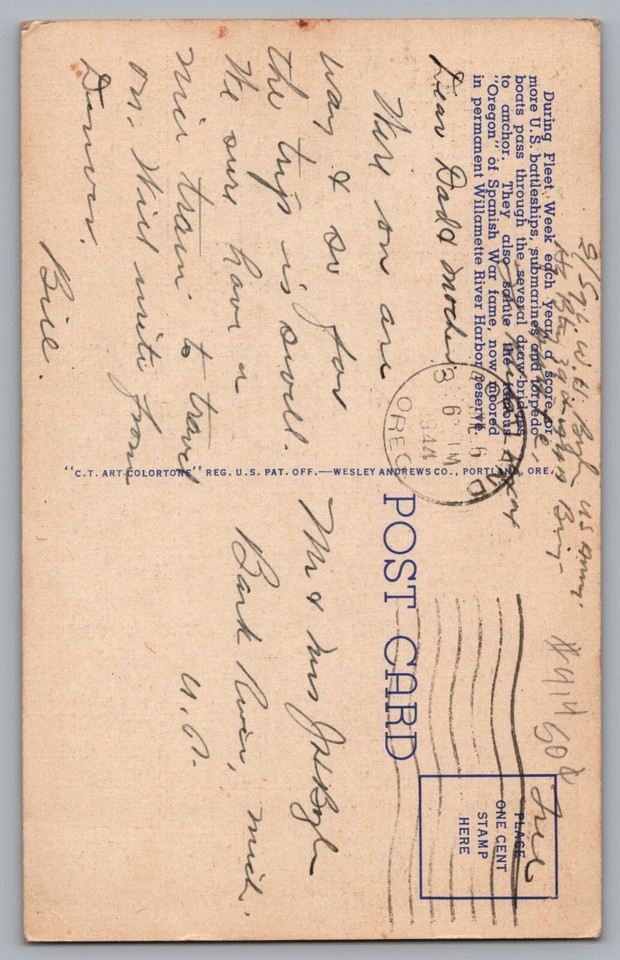 S/Sgt. W. H. Boyle US Army.
During Fleet Week each year, a score or
more U.S. battleships, submarines and torpedo
boats pass through the several draw-bridges
to anchor. They also salute the famous
"Oregon" of Spanish War fame, now moored
in permanent Willamette River Harbor reserve.
Dear Dad & Mother
Here on are
way & so far
the trip is swell.
We sure have a
nice train to travel
on. Will write from
Denver.
Bill.
"C.T. ART-COLORTONE" REG. U.S. PAT. OFF.—WESLEY ANDREWS CO., PORTLAND, ORE.
POST CARD
Free
PLACE
ONE CENT
STAMP
HERE
OREG
Mr & Mrs J H Boyle
Bark River, Mich.
U.P.
#414